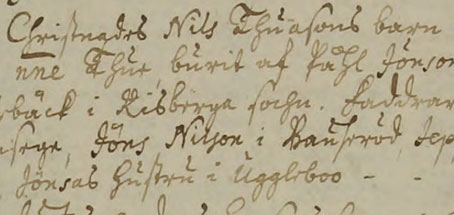 Christnades Nils Thuasons barn
nne Thue, burit af Påhl Jönson
sbäck i Risberga sochn. Faddrar
Jöns Nilson i Bauseröd, Jep
Jönsas hustru i Uggleboo - -